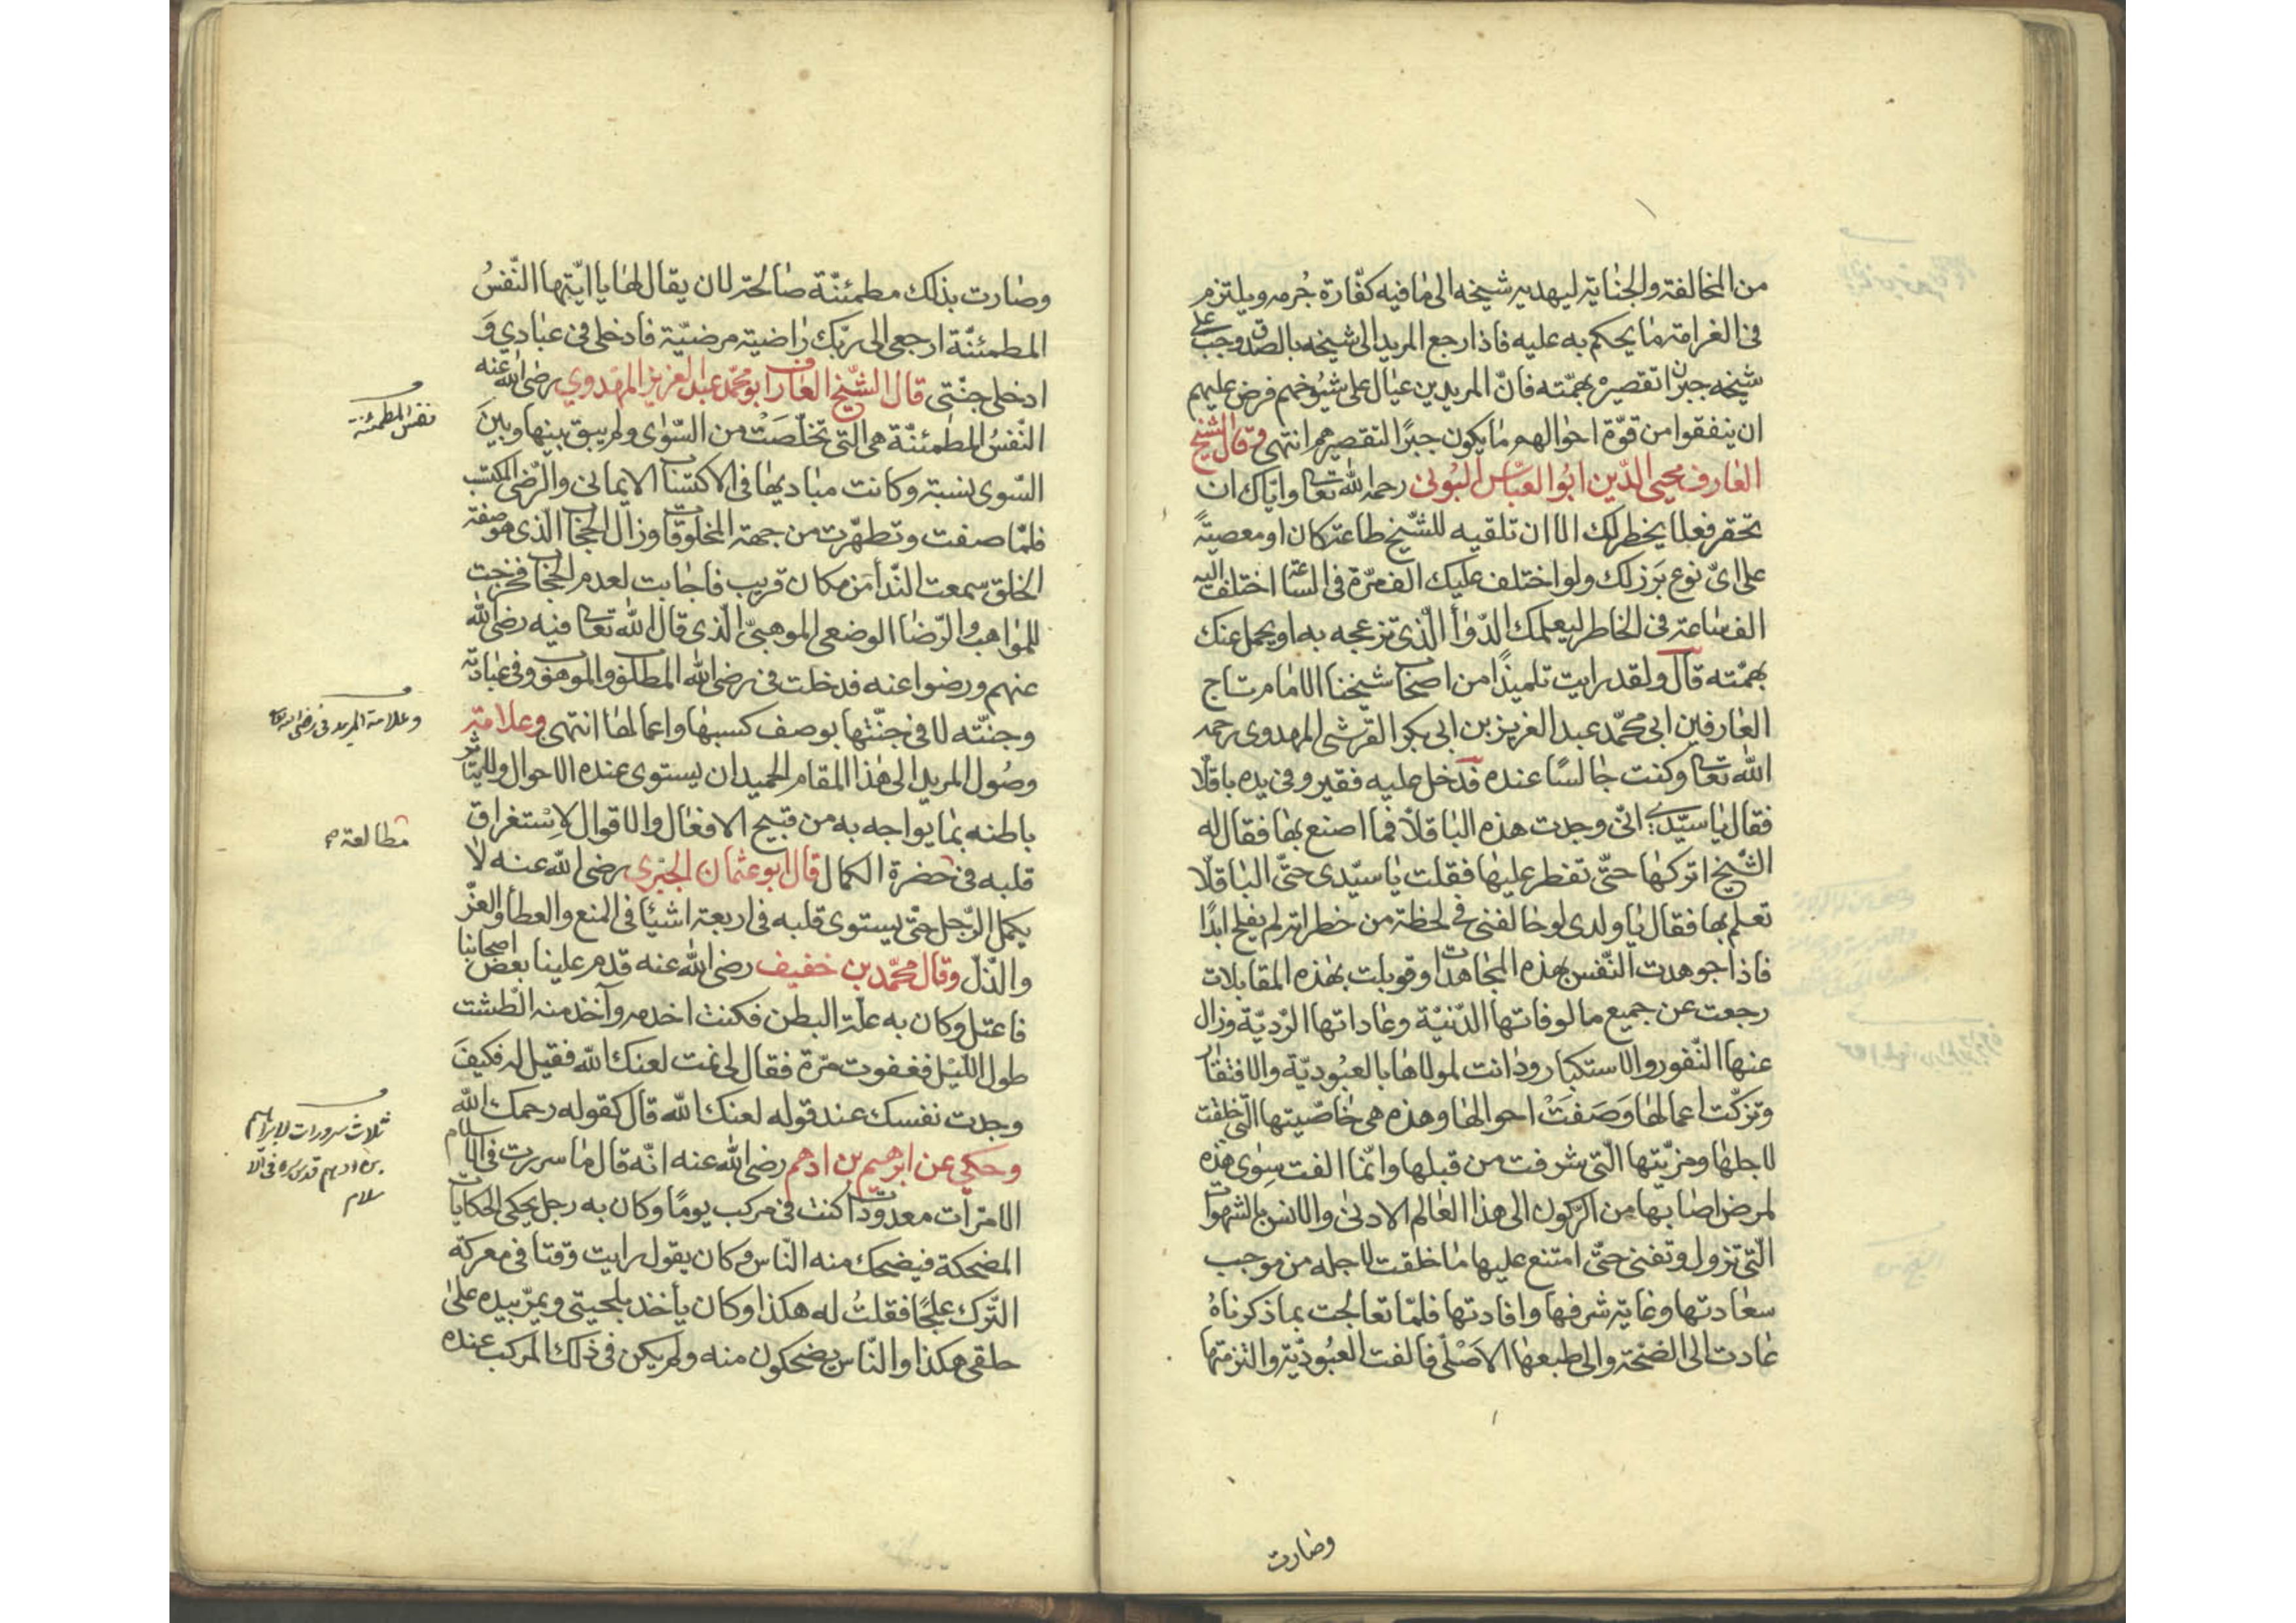 من المخالفة والجناية ليهديه شيخه الى ما فيه كفّارة جُرمه ويلتزم
فى الغرامة ما يحكم به عليه فاذا رجع المريد الى شيخه بالصدق وجب على
شيخه جبران تقصيره بهمّته فانّ المريدين عيال على شيُوخهم فرض عليهم
ان ينفقوا من قوّة احوالهم ما يكون جبرًا لتقصيرهم انتهى وقال الشيخ
العارف محيى الدّين ابُو العبّاس البُونى رحمه الله تعا وايّاك ان
تحقر فعلا يخطر لك الا ان تلقيه للشّيخ طاعة كان او معصيةً
على اىّ نوع بَرَز لك ولو اختلف عليك الف مرّة فى السّاعة اختلف اليه
الف ساعة فى الخاطر ليعلمك الدّوأ الّذى تزعجه به او يحمل عنك
بهمّته قال ولقد رايت تلميذًا من اصحاب شيخنا الامام تاج
العارفين ابى محمّد عبد العزيز بن ابى بكر القرشى المهدوى رحمه
الله تعا وكنت جالسًا عنده قد دخل عليه فقير وفى يده باقلّا
فقال يا سيّدى انّى وجدت هذه الباقلّا فما اصنع بها فقال له
الشّيخ اتركها حتّى تفطر عليها فقلت يا سيّدى حتّى الباقلّا
تعلم بها فقال يا ولدى لو خالفنى فى لحظة من خطراته لم يفلح ابدًا
فاذا جوهدت النّفس بهذه المجاهدات وقوبلت بهذه المقابلات
رجعت عن جميع مالوفاتها الدّنيّة وعاداتها الرّديّة وزال
عنها النّفور والاستكبار ودانت لمولاها بالعبُوديّة والافتقار
وتزكّت اعمالها وَصَفَتْ احوالها وهذه هى خاصّيتها الّتى خلقت
لاجلها ومزيّتها الّتى شرفت من قبلها وانّما الفت سِوى هذه
لمرض اصابها من الرّكون الى هذا العالم الادنى والانس بالشهوات
الّتى تزول وتفنى حتّى امتنع عليها ما خلقت لاجله من موجب
سعادتها وغاية شرفها وافادتها فلمّا تعالجت بما ذكرناهُ
عادت الى الصّحّة والى طبعها الاَصْلى فالفت العبُوديّة والتزمتها
وصارت
وصارت بذلك مطمئنّة صالحة لان يقال لها يا ايّتها النّفسُ
المطمئنّة ارجعى الى ربّك راضية مرضيّة فادخلى فى عبادى وَ
ادخلى جنّتى قال الشّيخ العارف ابو محمّد عبد العزيز المهدوى رضى الله عنه
النّفسُ المطمئنّة هى الّتى تخلّصَتْ من السّوٰى ولم يبق بينها وبينَ
السّوى نسبة وكانت مباديها فى الاكتساب الايمانى والرّضى المكتسب
فلمّا صفت وتطهّرت من جهة المخلوقات وزال الحجاب الّذى هو صفة
الخلق سمعت النّدأ من مكان قريب فاجابت لعدم الحجاب فخرجت
للمواهب والرّضا الوضعى الموهبىّ الّذى قال الله تعا فيه رضى الله
عنهم ورضوا عنه فدخلت فى رضى الله المطلق والموهق وفى عباداته
وجنّته لا فى جنّتها بوصف كسبها واعمالها انتهى وعلامة
وصُول المريد الى هذا المقام الحميد ان يستوى عنده الاحوال ولا يتأثر
باطنه بما يواجه به من قبيح الافعال والاقوال لاِسْتغراق
قلبه فى حضرة الكمال قال ابو عثمان الحيرى رضى الله عنه لا
يكمل الرّجل حتّى يستوى قلبه فى اربعة اشيأ فى المنع والعطأ والعزّ
والذّلّ وقال محمّد بن خفيف رضى الله عنه قدم علينا بعض اصحابنا
فاعتلّ وكان به علّة البطن فكنت اخدمه وآخذ منه الطشت
طول اللّيل فغفوت مرّة فقال لى نمت لعنك الله فقيل له فكيفَ
وجدت نفسك عند قوله لعنك الله قال كقوله رحمك الله
وحكى عن ابرهيم بن ادهم رضى الله عنه انّه قال ما سررت فى الاسلام
الا مرّات معدودات كنت فى مركب يومًا وكان به رجل يحكى الحكايات
المضحكة فيضحك منه النّاس وكان يقول رايت وقتا فى معركة
التّرك علجًا فقلتُ له هكذا وكان يأخذ بلحيتى ويمرّ بيده على
حلقى هكذا والنّاس يضحكون منه ولم يكن فى ذلك المركب عنده
نفس المطمئنة
وعلامة المريد فى رضى الله تعا
مطالعة
ثلاث سرورات لابراهيم
بن ادهم قدس سره فى الا
سلام